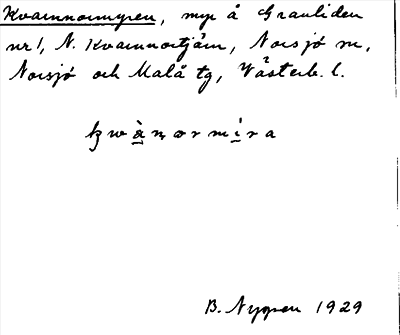 Kvarnnormyren, myr å Granliden
nr 1, N. Kvarnnortjärn, Norsjö sn,
Norsjö och Malå tg, Västerb. l.
B. Nygren 1929